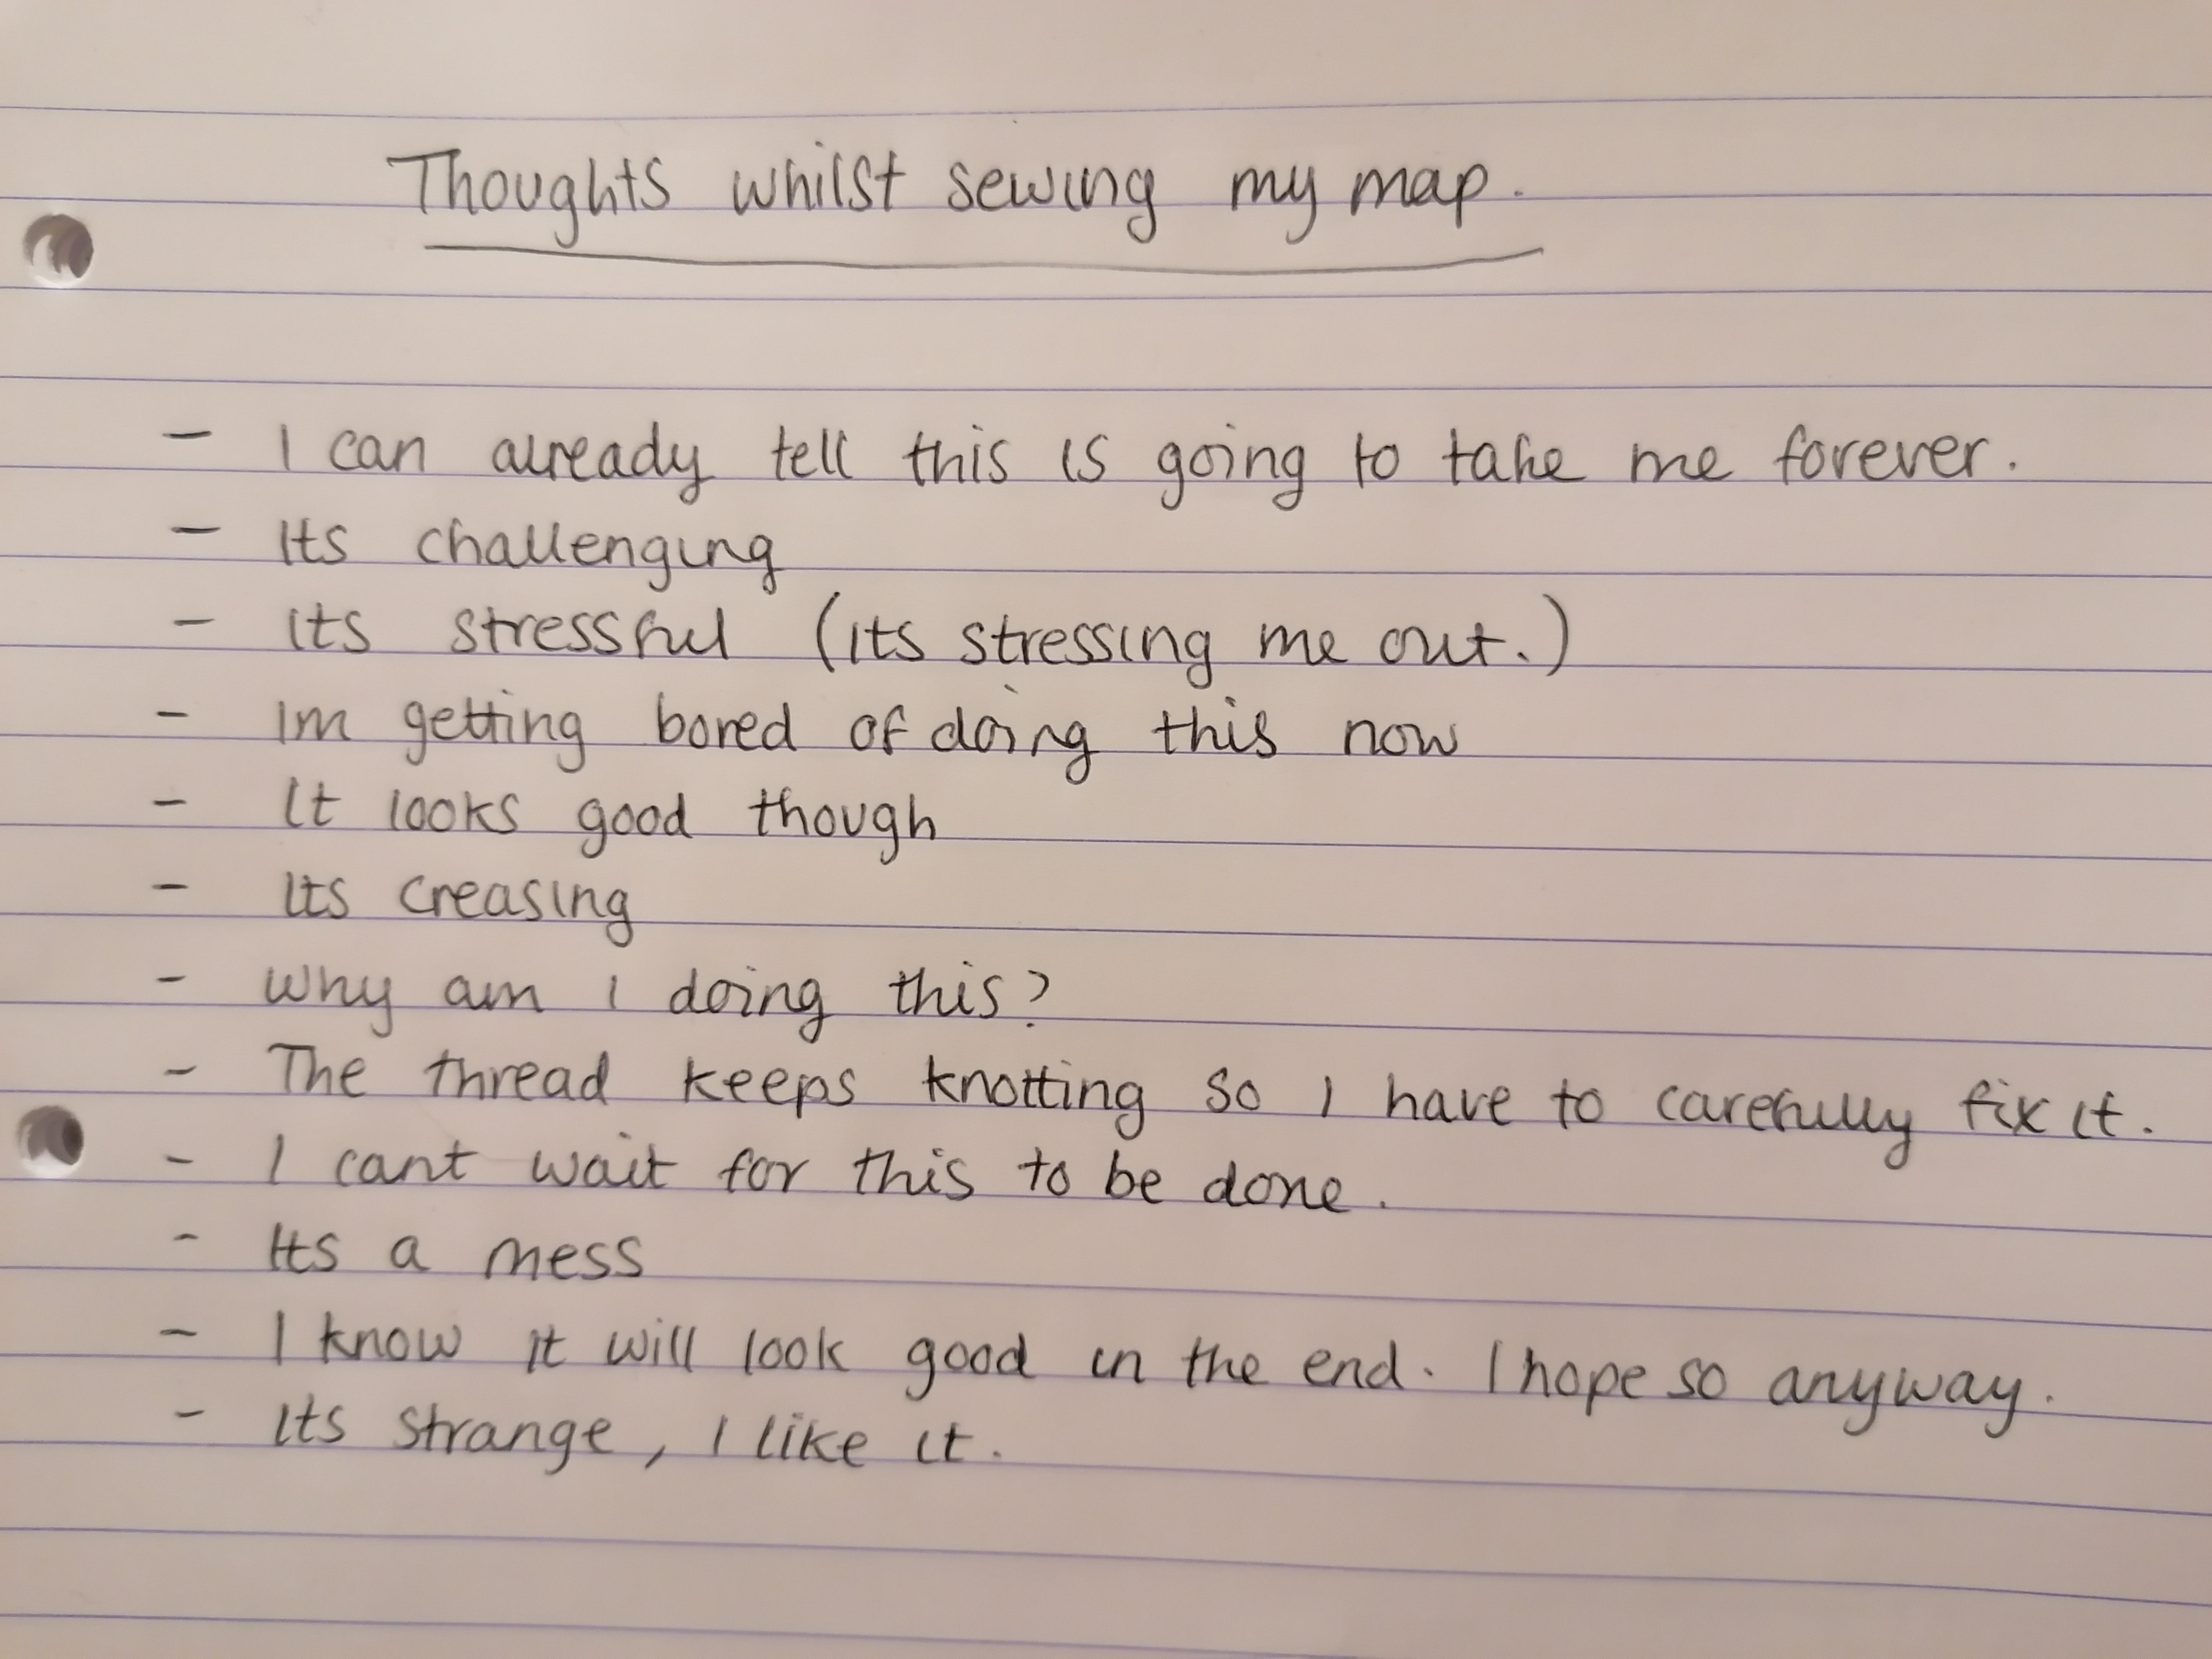 Thoughts whilst sewing my map.
- I can already tell this is going to take me forever.
- Its challenging
- Its stressful (its stressing me out.)
- Im getting bored of doing this now
- It looks good though
- Its creasing
- Why am I doing this?
- The thread keeps knotting so I have to carefully fix it.
- I cant wait for this to be done.
- Its a mess
- I know it will look good in the end. I hope so anyway.
- Its strange, I like it.